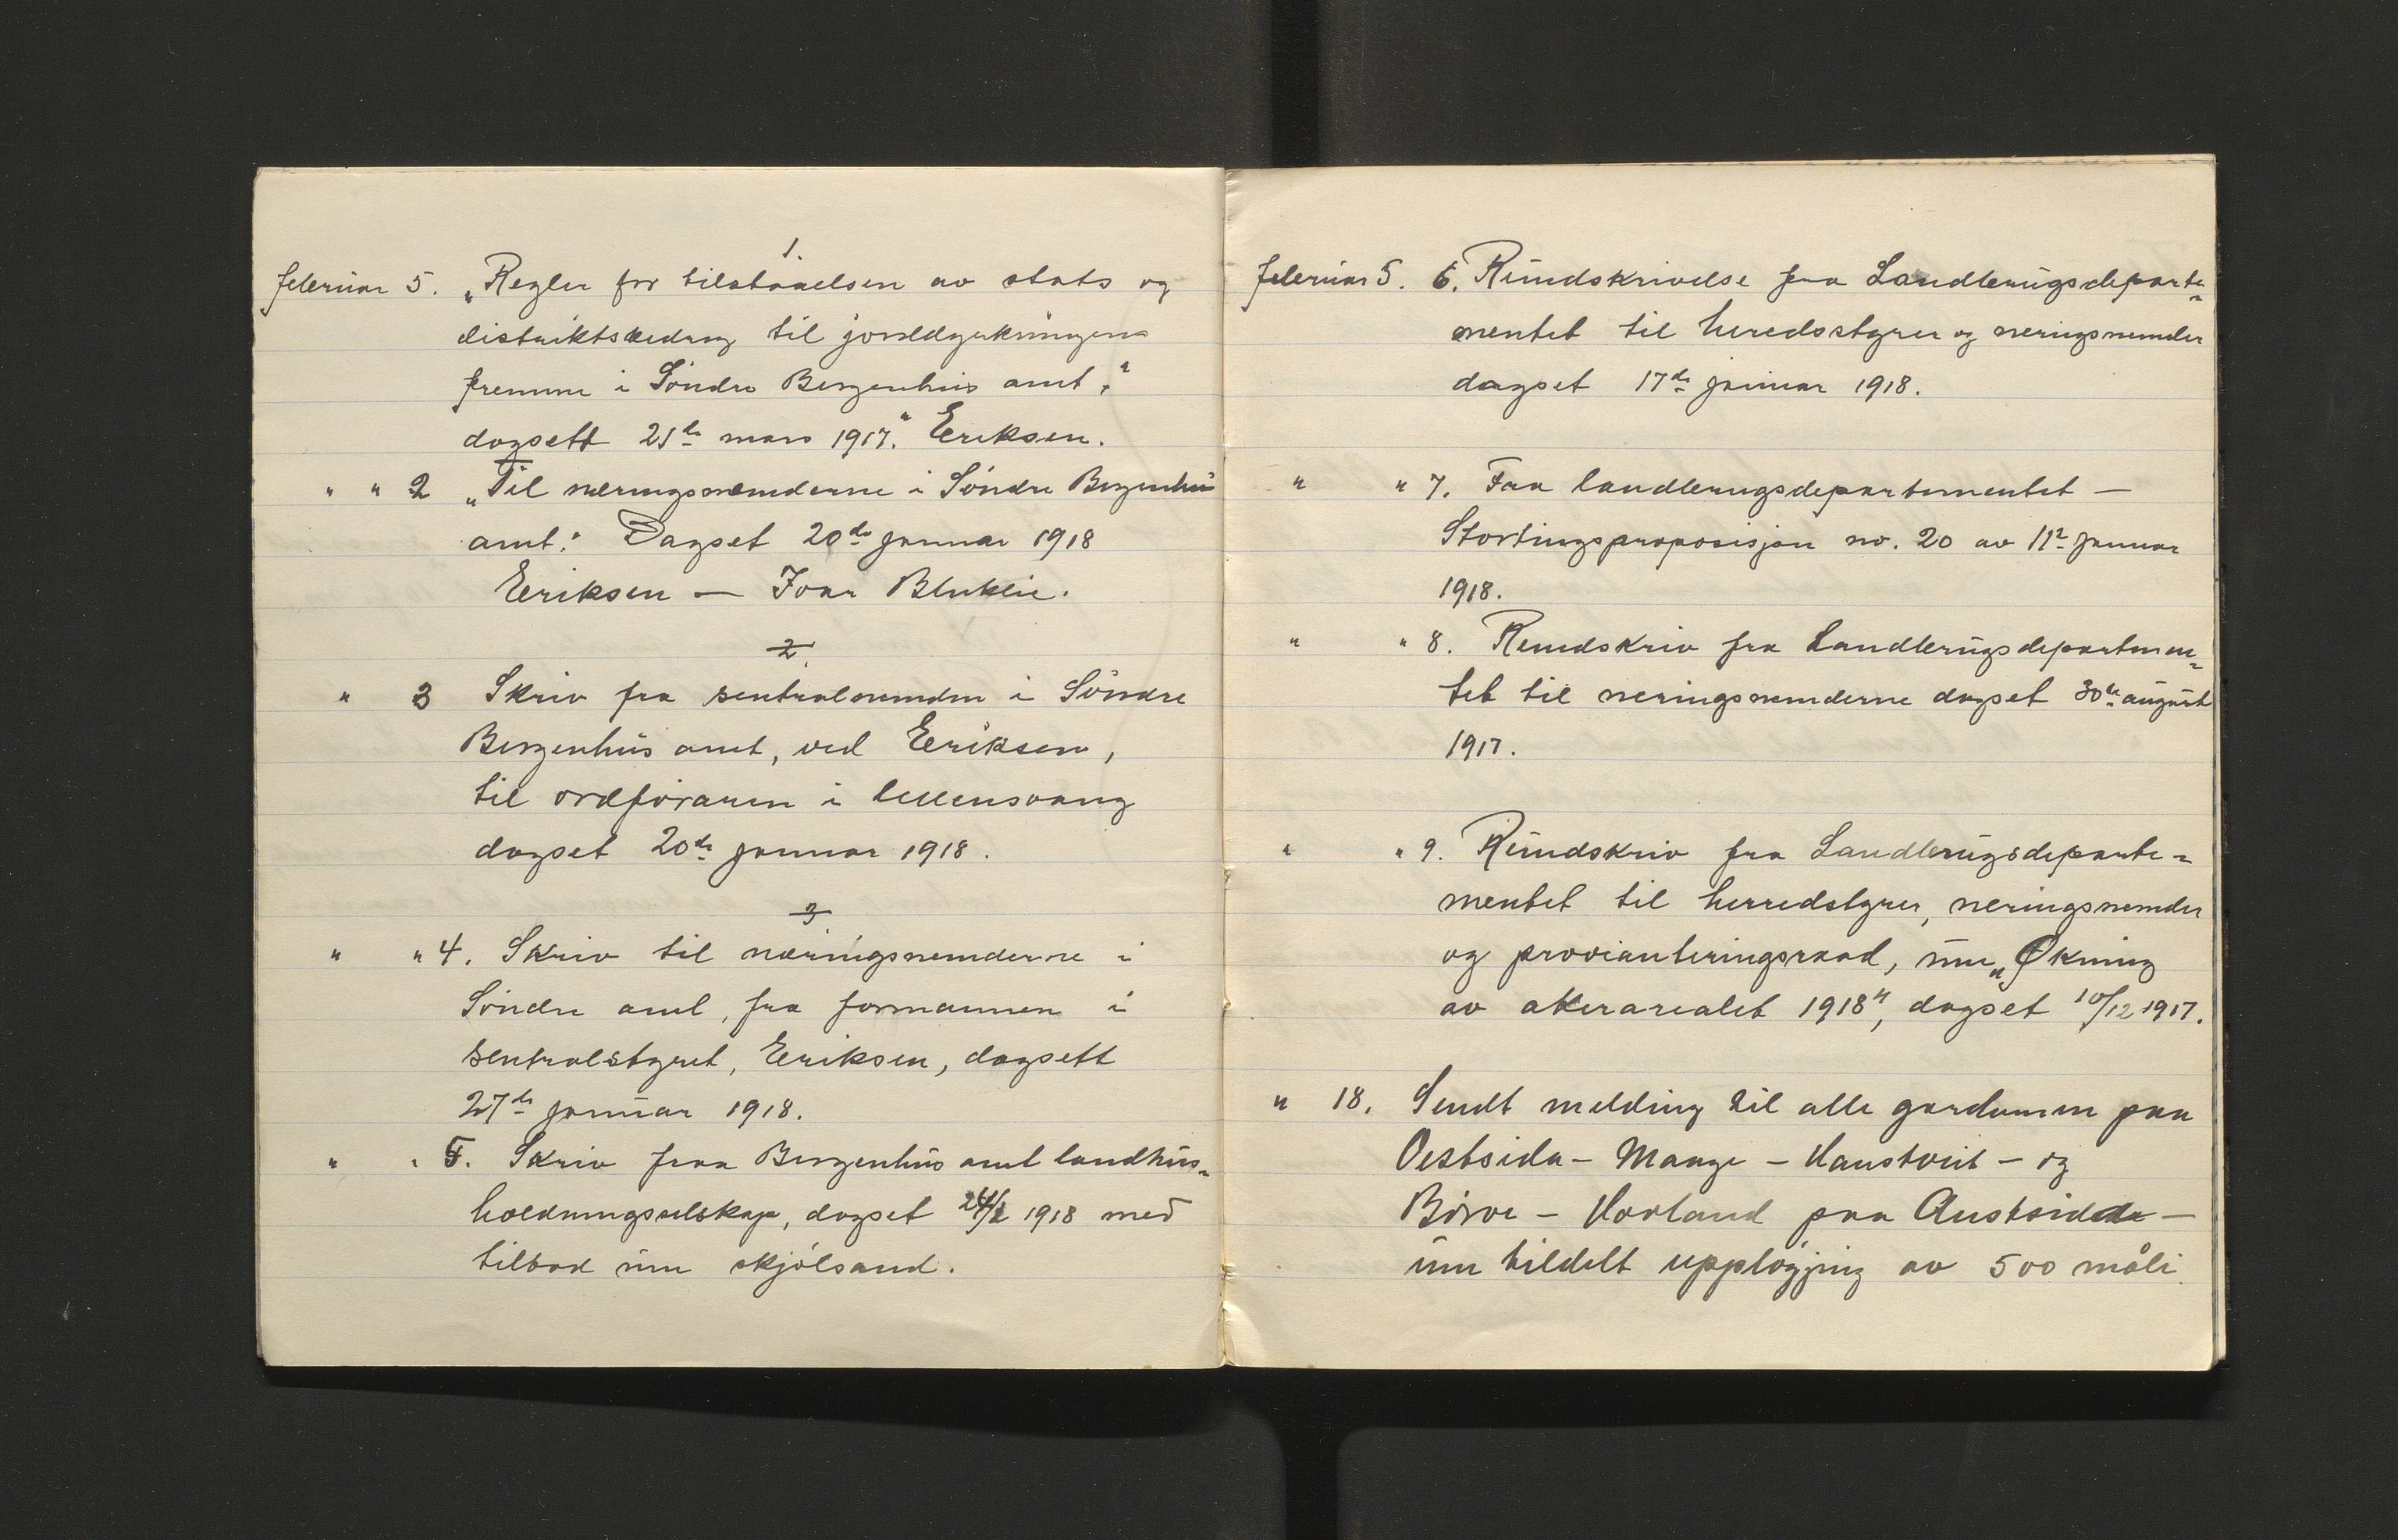 1.
februar 5. „Regler for tilstaaelsen av stats og
distriktsbidrag til jorddyrkningens
fremme i Söndre Bergenhus amt,"
dagsett 21de mars 1917." Eriksen.
" " 2 „Til næringsnemderne i Söndre Bergenhus
amt." Dagset 20de januar 1918
Eriksen — Ivar Bleiklie.
2.
" 3 Skriv fra sentralnemdin i Söndre
Bergenhus amt, ved Eriksen,
til ordföraren i Ullensvang
dagset 20de januar 1918.
3
" " 4. Skriv til næringsnemderne i
Söndre amt, fra formannen i
sentralstyret, Eriksen, dagsett
27de januar 1918.
" " 5. Skriv fraa Bergenhus amt landhus-
holdningsselskap, dagset 1918 med
tilbod um skjölsand.
februar 5. 6. Rundskrivelse fra Landbrugsdeparte-
mentet til heredsstyrer og neringsnemder
dagset 17de januar 1918.
" " 7. Fraa landbrugsdepartementet —
Stortingsproposisjon no. 20 av 11te januar
1918.
" " 8. Rundskriv fra Landbrugsdepartemen-
tet til neringsnemderne dagset 30te august
1917.
" " 9. Rundskriv fra Landbrugsdeparte-
mentet til herredstyrer, neringsnemder
og provianteringsraad, um „Økning
av akerarealet 1918", dagset 10/12 1917.
" 18. Sendt melding til alle gardumen paa
Vestsida – Maage – Naustvit – og
Börve – Hovland paa Austsida —
um tildelt upplögjing av 500 måli